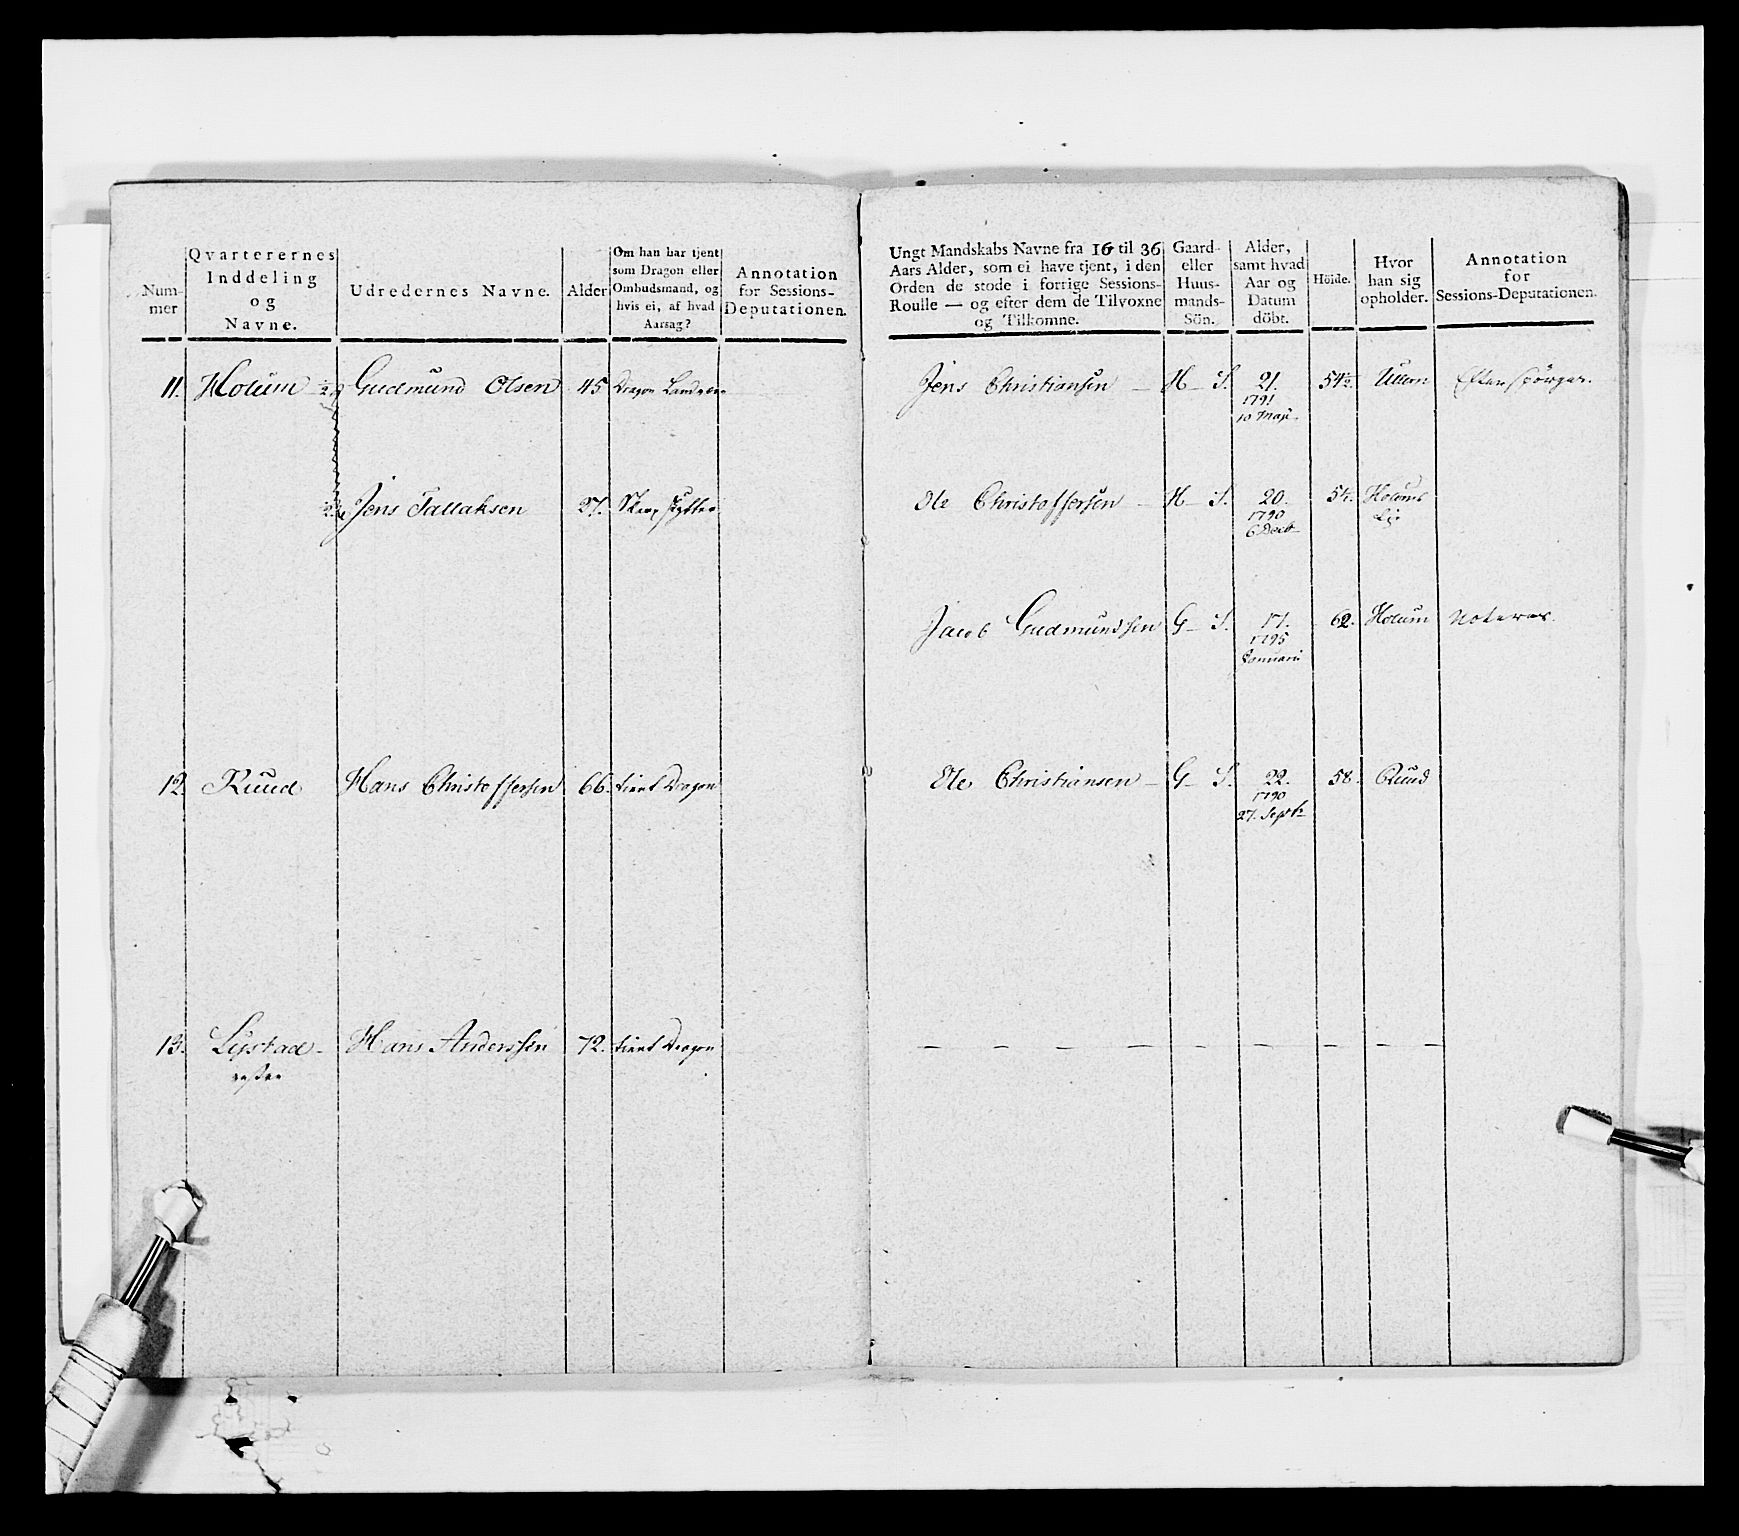 Num-
mer
Qvarterernes
Inddeling
og
Navne.
Udredernes Navne.
Alder
Om han har tjent
som Dragon eller
Ombudsmand, og
hvis ei, af hvad
Aarsag?
Annotation
for Sessions-
Deputationen.
Ungt Mandskabs Navne fra 16 til 36
Aars Alder, som ei have tjent, i den
Orden de stode i forrige Sessions-
Roulle — og efter dem de Tilvoxne
og Tilkomne.
Gaard-
eller
Huus-
mands-
Sön.
Alder,
samt hvad
Aar og
Datum
döbt.
Höide.
Hvor
han sig
opholder.
Annotation
for
Sessions-Deputationen.
11. Holum ½ Gudmund Olsen 45 Dragon
Jens Christiansen — H— S. 21. 54½ Ullern Efterspörges.
1791
10 Maji
½ Jens Tallaksen 27. Skarpskytter
Ole Christoffersen — H— S. 20. 54. Holums
1790 Eje
6 Decb
Jacob Gudmundsen G— S. 17. 62. Holum Noteres.
1795
Januari
12 Ruud Hans Christoffersen 66. tient Dragon
Ole Christiansen — G— S. 22. 58. Ruud
1790
27. Septb
13. Lystad Hans Anderssen 72. tient Dragon
vestre
— — — — — — — —